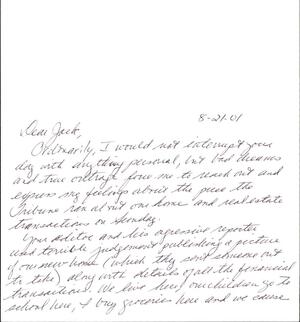 8-21-01
Dear Jack,
Ordinarily, I would not interrupt your
day with anything personal, but bad dreams
and true outrage force me to reach out and
express my feelings about the piece the
Tribune ran about our home and real estate
transactions on Sunday.
Your editor and his agressive reporter
used terrible judgement publishing a picture
of our new home (which they sent someone out
to take) along with details of all the financial
transactions. We live here, our children go to
school here, I buy groceries here and we